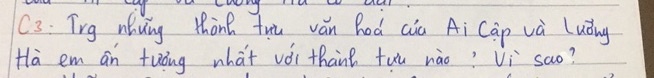 C3: Trg những thành tựu văn hoá của Ai Cập và Lưỡng
Hà em ấn tượng nhất với thành tựu nào? Vì sao?